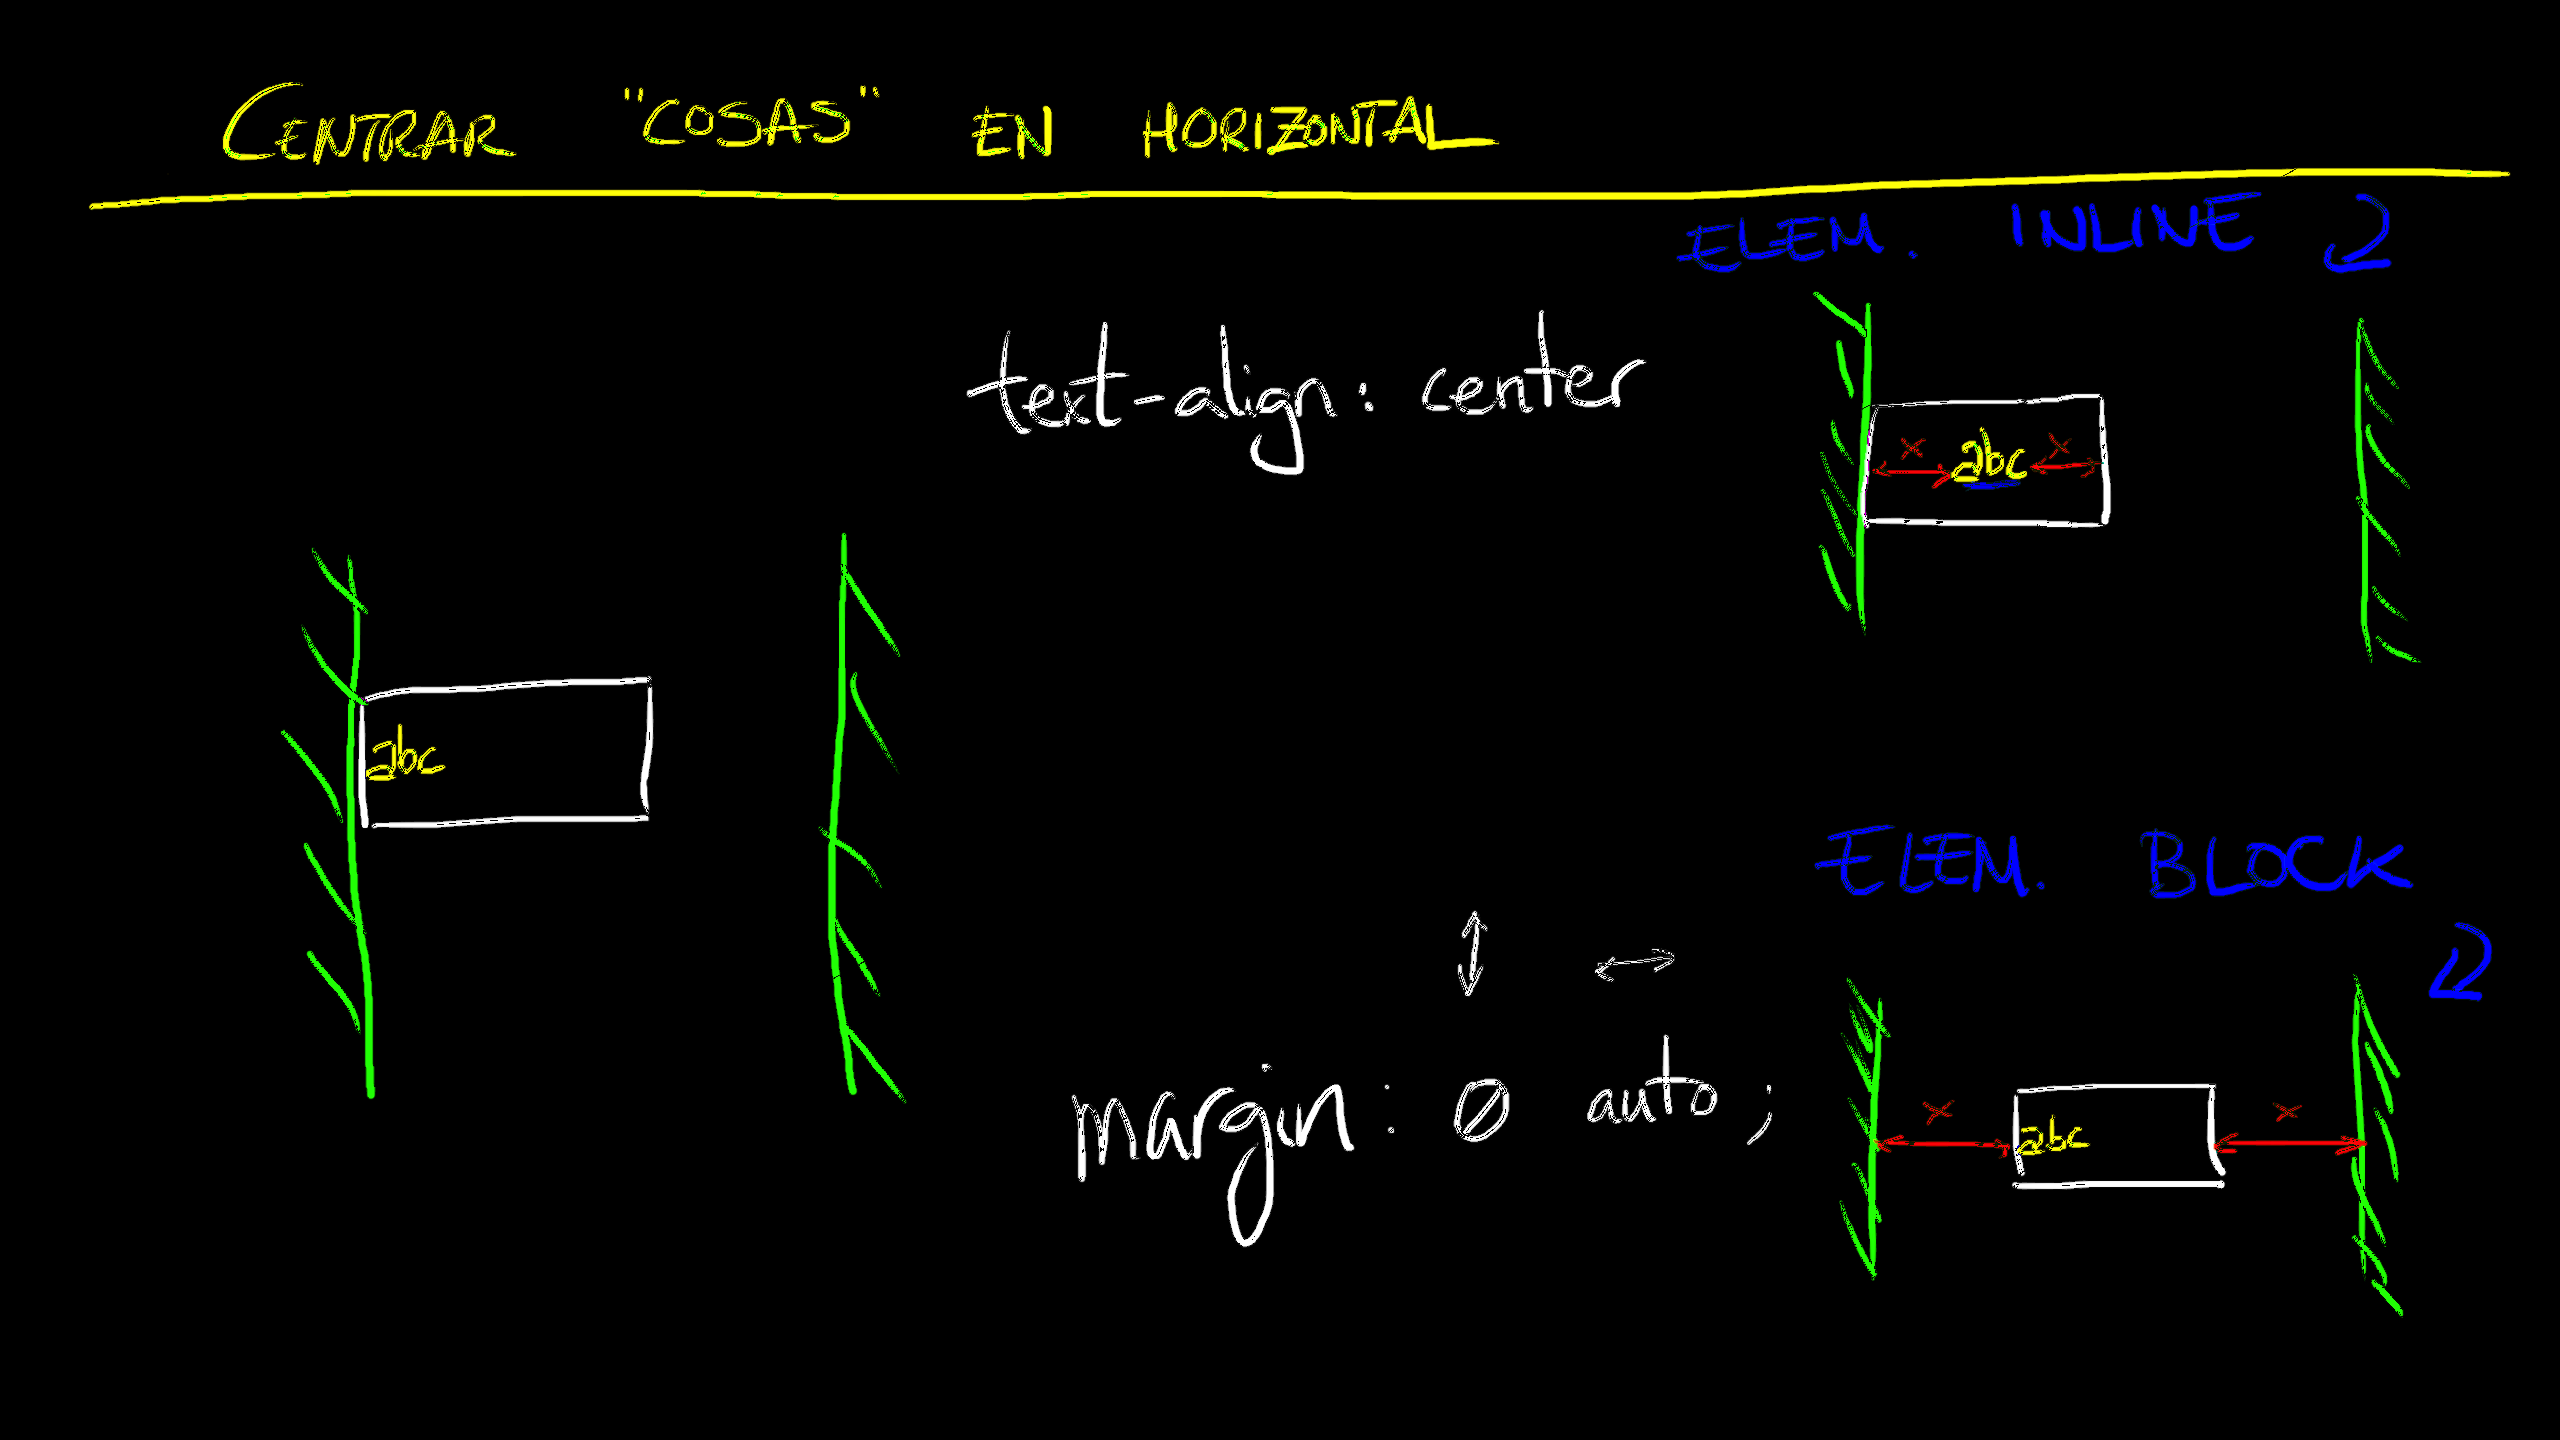 CENTRAR "COSAS" EN HORIZONTAL
ELEM. INLINE
text-align: center
x abc x
abc
ELEM. BLOCK
margin: 0 auto;
x abc x